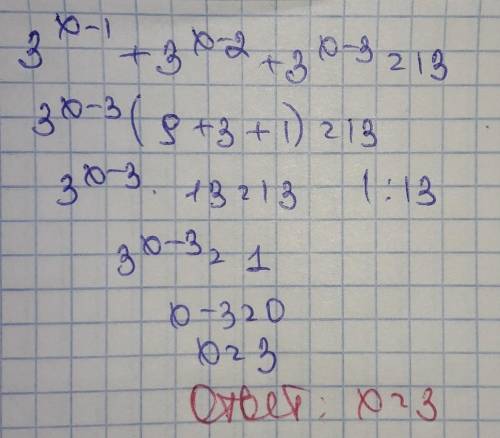 3^{x-1} + 3^{x-2} + 3^{x-3} = 13
3^{x-3} (9 + 3 + 1) = 13
3^{x-3} · 13 = 13 | : 13
3^{x-3} = 1
x - 3 = 0
x = 3
Ответ: x = 3